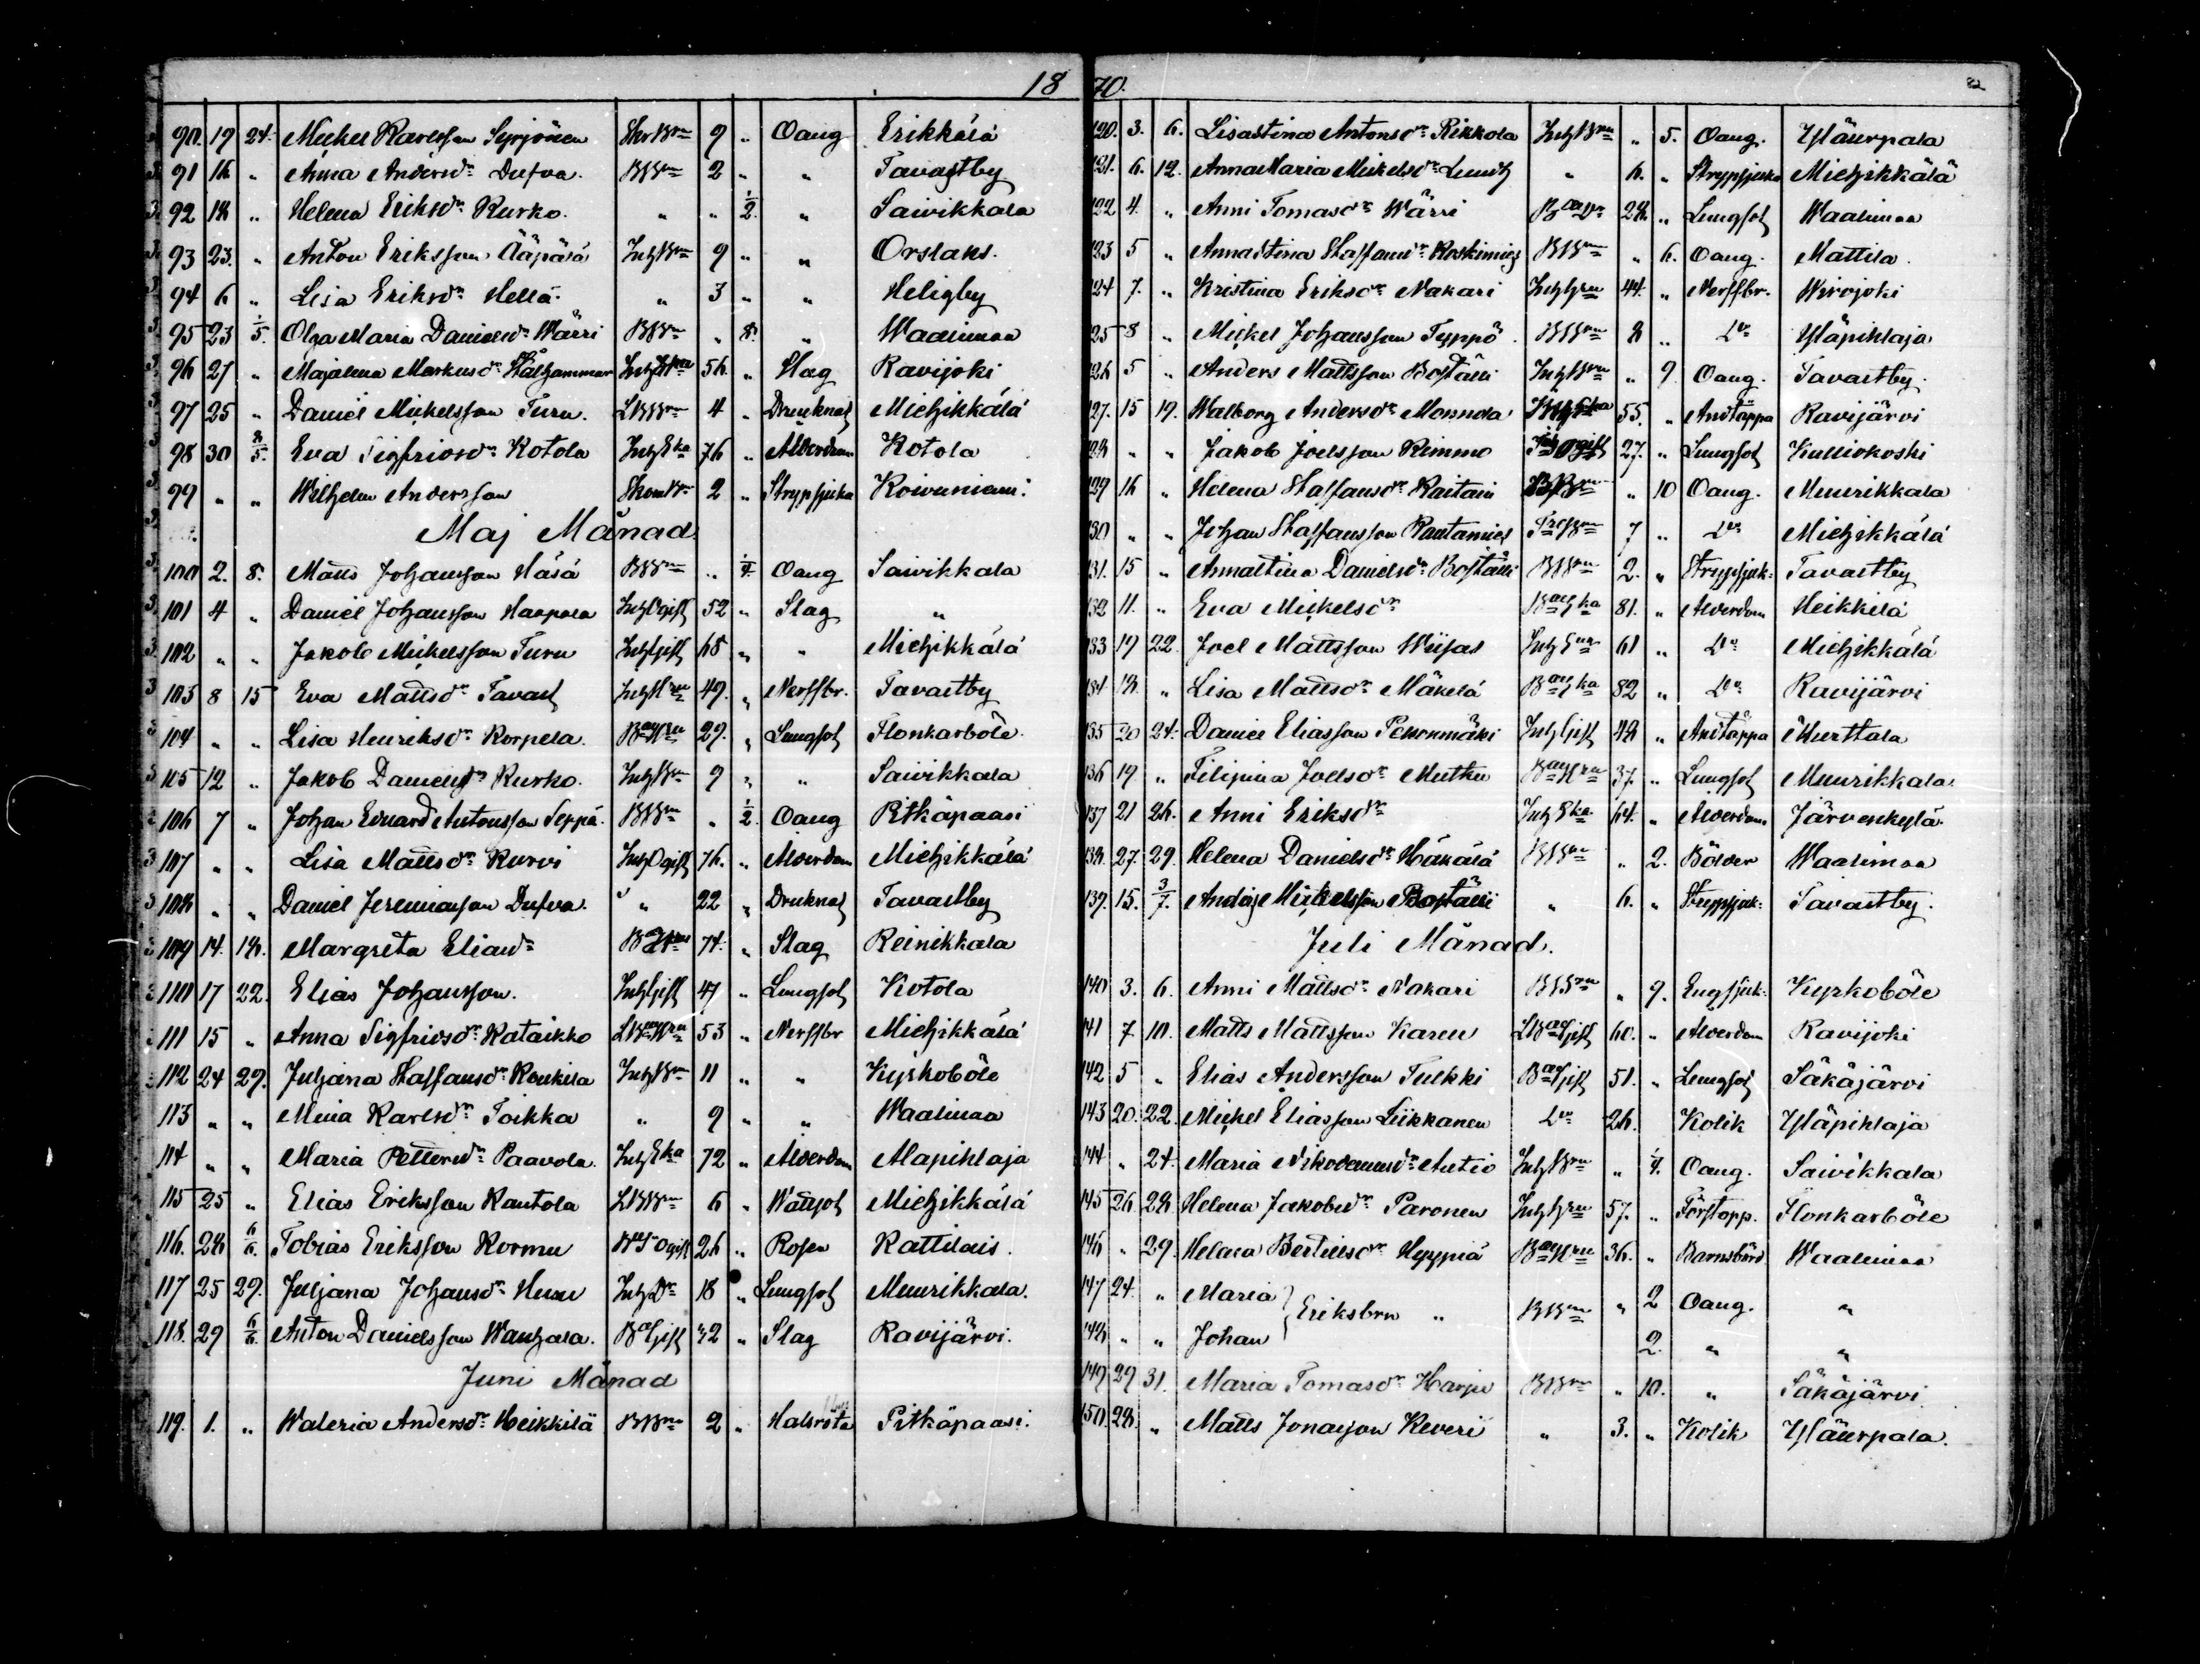 1870.
90. 19 24. Mickel Karlsson Syrjönen SkrBrn 9 " Oang Erikkälä
91 16 " Anna Andersdr Dufva. BBrn 2 " " Tavastby
92 18 " Helena Eriksdr Kurko. " " 1/2. " Saivikkala
93 23. " Anton Eriksson Ääpälä InhBrn 9 " " Orslaks.
94 6 " Lisa Eriksdr Hellä. " 3 " " Heligby
95 23 1/5. Olga Maria Danielsdr Wärri BBrn " 8. " Waalimaa
96 27 " Majalena Markusdr Stålhammar InhHru 56. " Slag Ravijoki
97 25 " Daniel Mickelsson Turu. LBBrn 4 " Druknat Miehikkälä
98 30 8/5. Eva Sigfridsdr Kotola InhEka 76 " Ålderdom Kotola
99 " " Wilhelm Andersson 2 " Strypsjuka Koivuniemi.
Maj Månad
100 2. 8. Matts Johansson Häsä BBrn " 1/4. Oang Saivikkala
101 4 " Daniel Johansson Haapala InhOgift 52 " Slag "
102 " " Jakob Mickelsson Turu InhGift 68 " " Miehikkälä
103 8 15 Eva Mattsdr Tavast InhHru 49. " Nerffbr. Tavastby
104 " " Lisa Henriksdr Korpela. BaHru 29. " Lungsot Flonkarböle.
105 12 " Jakob Danielsson Kurko. InhBrn 9 " " Saivikkala
106 7 " Johan Edvard Antonsson Seppä. BBrn " 1/2. Oang Pitkäpaasi
107 " " Lisa Mattsdr Kurvi InhOgift 76. " Ålderdom Miehikkälä
108 " " Daniel Jeremiasson Dufva. " 22 " Druknat Tavastby
109 14. 18. Margreta Eliasdr 74. " Slag Reinikkala
110 17 22. Elias Johansson. InhGift 47 " Lungsot Kotola
111 15 " Anna Sigfridsdr Kataikko LBaHru 53 " Nerffbr Miehikkälä
112 24 29. Juliana Staffansdr Koukila InhBrn 11 " " Kyrkoböle
113 " " Mina Karlsdr Toikka " 9 " " Waalimaa
114 " " Maria Pettersdr Paavola. InhEka 72 " Ålderdom Alapihlaja
115 25 " Elias Eriksson Rautola LBBrn 6 " Wattsot Miehikkälä
116. 28 6/6. Tobias Eriksson Kormu 26 " Rosen Kattilais.
117 25 29. Juljana Johansdr Huuu InhDr 18 " Lungsot Muurikkala.
118. 29 6/6. Anton Danielsson Wanhala. BaGift 32 " Slag Ravijärvi.
Juni Månad
119. 1. " Waleria Andersdr Heikkilä BBrn 2 " Halsröta Pitkäpaasi.
120. 3. 6. Lisastina Antonsdr Rikkola InhBrn " 5. Oang. Yläurpala
121. 6. 12. AnnaMaria Mickelsdr Lundh " 6. " Strypsjuka Miehikkälä
122 4. " Anni Tomasdr Wärri BaDr 28. " Lungsot Waalimaa
123 5 " Annastina Staffansdr Koskimies BBrn " 6. Oang. Mattila.
124 7. " Kristina Eriksdr Nakari InhHru 44. " Nerffbr. Wirojoki
125 3 " Mickel Johansson Teppö BBrn 8 " Do Yläpihlaja
126 5 " Anders Mattsson Bostäri InhBrn " 9. Oang. Tavastby.
127. 15 19. Walborg Andersdr Monnola 55. " Andtäppa Ravijärvi
128 " " Jakob Joelsson Kimmo 27. " Lungsot Kulliokoski
129 16 " Helena Staffansdr Raitain BBrn " 10 Oang. Muurikkala
130 " " Johan Staffansson Rautamies 7 " Do Miehikkälä
131. 15 " Annastina Danielsdr Bostäri BBrn 2. " Strypsjuk. Tavastby
132 11. " Eva Mickelsdr BaEka 81. " Ålderdom Heikkilä
133 19 22. Joel Mattsson Wiisas 61 " Do Miehikkälä
134 18. " Lisa Mattsdr Mäkelä BaEka 82 " Do Ravijärvi
135 20 24. Daniel Eliasson Pekonmäki InhGift 48 " Andtäppa Hurttala
136 19 " Filipina Joelsdr Muthu BaHru 37. " Lungsot Muurikkala.
137 21 26. Anni Eriksdr InhEka 64. " Ålderdom Järvenkylä.
138. 27. 29. Helena Danielsdr Häkälä BBrn " 2. Bölder Waalimaa
139. 15. 3/7. Anders Mickelsson Bostäri " 6. " Strypsjuk. Tavastby.
Juli Månad.
140 3. 6. Anni Mattsdr Nakari BBrn " 9. Engsjuk. Kyrkoböle
141 7 10. Matts Mattsson Karen LBaGift 60. " Ålderdom Ravijoki
142 5 " Elias Andersson Tulkki BaGift 51. " Lungsot Säkäjärvi
143 20. 22. Mickel Eliasson Liikkanen Do 26. Kolik Yläpihlaja
144 " 24. Maria Nikodemusdr Autio InhBrn " 1/4. Oang. Saivikkala
145 26 28 Helena Jakobsdr Paronen InhHru 57. " Förstopp. Flonkarböle
146 " 29 Helena Bertilsdr Hyypiä BaHru 36. " Barnsbörd Waalimaa
147 24. " Maria } Eriksbrn " BBrn " 2 Oang. "
148 " " Johan 2. " "
149 29 31. Maria Tomasdr Harju BBrn " 10. " Säkäjärvi
150. 28. " Matts Jonasson Keveri " 3. " Kolik Yläurpala.